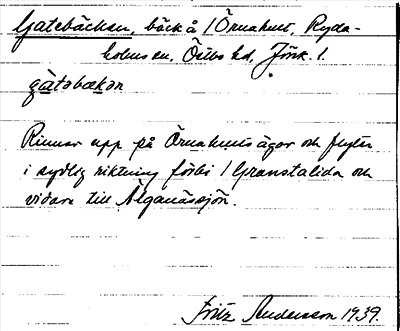 Gatebäcken, bäck å 1 Örnahult, Ryda-
holms sn, Östbo hd, Jönk. l.
gàtəbækən
Rinner upp på Örnahults ägor och flyter
i sydlig riktning förbi 1 Granstalida och
vidare till Älganässjön.
Fritz Andersson 1939.